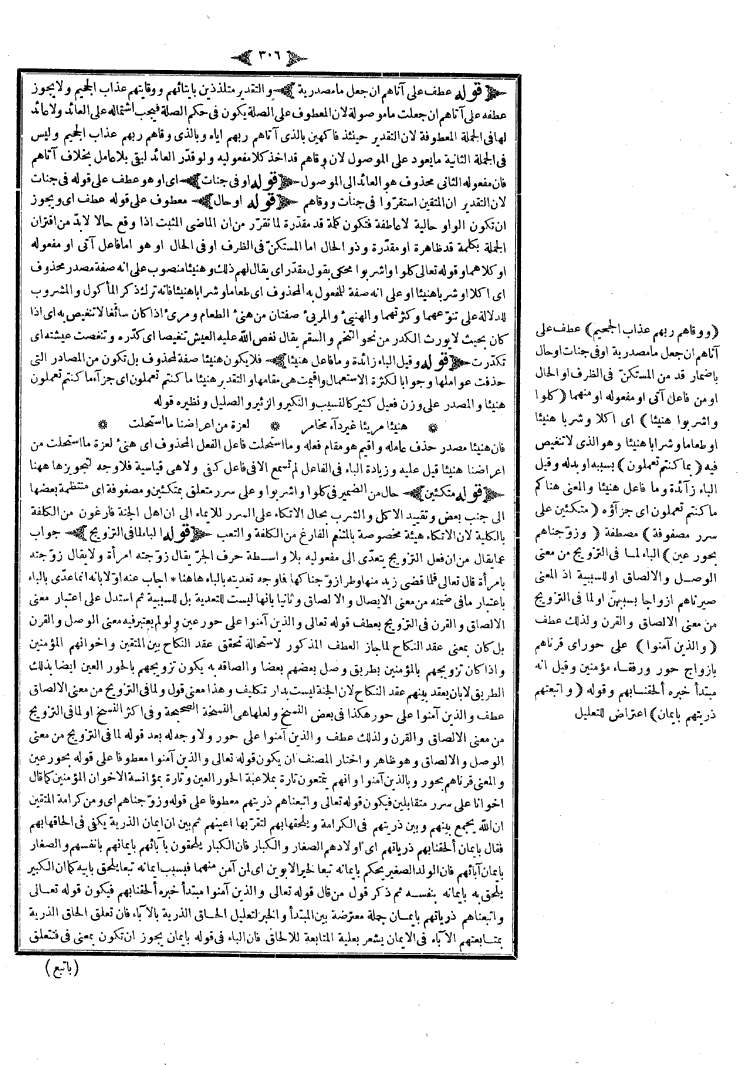 ٣٠٦
قوله عطف على آتاهم ان جعل ما مصدرية والتقدير متلذذين بايتائهم ووقايتهم عذاب الجحيم ولا يجوز
عطفه على آتاهم ان جعلت ما موصولة لان المعطوف على الصلة يكون فى حكم الصلة فيجب اشتماله على العائد ولا عائد
لها فى الجملة المعطوفة لان التقدير حينئذ فاكهين بالذى آتاهم ربهم اياه وبالذى وقاهم ربهم عذاب الجحيم وليس
فى الجملة الثانية ما يعود على الموصول لان وقاهم قد اخذ كلا مفعوليه ولو قدّر العائد لبقى بلا عامل بخلاف آتاهم
فان مفعوله الثانى محذوف هو العائد الى الموصول قوله او فى جنات اى او هو عطف على قوله فى جنات
لان التقدير ان المتقين استقرّوا فى جنات ووقاهم قوله او حال معطوف على قوله عطف اى ويجوز
ان تكون الواو حالية لا عاطفة فتكون كلمة قد مقدّرة لما تقرر من ان الماضى المثبت اذا وقع حالا لابدّ من اقتران
الجملة بكلمة قد ظاهرة او مقدّرة وذو الحال اما المستكنّ فى الظرف او فى الحال او هو اما فاعل آتى او مفعوله
او كلاهما وقوله تعالى كلوا واشربوا محكى بقول مقدّر اى يقال لهم ذلك وهنيئا منصوب على انه صفة مصدر محذوف
اى اكلا وشربا هنيئا او على انه صفة للمفعول به المحذوف اى طعاما وشرابا هنيئا فانه ترك ذكر المأكول والمشروب
للدلالة على تنوّعهما وكثرتهما والهنيئ والمريئ صفتان من هنئ الطعام ومرئ اذا كان سائغا لا تنغيص به اى اذا
كان بحيث لا يورث الكدر من نحو التخم والسقم يقال نغص الله عليه العيش تنغيصا اى كدّره وتنغصت عيشته اى
تكدّرت قوله وقيل الباء زائدة وما فاعل هنيئا فلا يكون هنيئا صفة لمحذوف بل تكون من المصادر التى
حذفت عواملها وجوبا لكثرة الاستعمال واقيمت هى مقامها والتقدير هنيئا ما كنتم تعملون اى جزآء ما كنتم تعملون
هنيئا والمصدر على وزن فعيل كثير كالنسيب والنكير والزئير والصليل ونظيره قوله
هنيئا مريئا غير دآء مخامر * لعزة من اعراضنا ما استحلت
فان هنيئا مصدر حذف عامله واقيم هو مقام فعله وما استحلت فاعل الفعل المحذوف اى هنئ لعزة ما استحلت من
اعراضنا هنيئا قيل عليه وزيادة الباء فى الفاعل لم تسمع الا فى فاعل كفى ولا هى قياسية فلا وجه لتجويزها ههنا
قوله متكئين حال من الضمير فى كلوا واشربوا وعلى سرر متعلق بمتكئين ومصفوفة اى منتظمة بعضها
الى جنب بعض وتقييد الاكل والشرب بحال الاتكاء على السرر للايماء الى ان اهل الجنة فارغون من الكلفة
بالكلية لان الاتكاء هيئة مخصوصة بالمتنعم الفارغ من الكلفة والتعب قوله الباء لما فى التزويج جواب
عما يقال من ان فعل التزويج يتعدّى الى مفعوليه بلا واسطة حرف الجرّ يقال زوّجته امرأة ولا يقال زوّجته
بامرأة قال تعالى فلما قضى زيد منها وطرا زوّجناكها فما وجه تعديته بالباء هاهنا * اجاب عنه اوّلا بانه انما عدّى بالباء
باعتبار ما فى ضمنه من معنى الايصال والالصاق وثانيا بانها ليست للتعدية بل للسببية ثم استدل على اعتبار معنى
الالصاق والقرن فى التزويج بعطف قوله تعالى والذين آمنوا على حور عين ولو لم يعتبر فيه معنى الوصل والقرن
بل كان بمعنى عقد النكاح لما جاز العطف المذكور لاستحالة تحقق عقد النكاح بين المتقين واخوانهم المؤمنين
واذا كان تزويجهم بالمؤمنين بطريق وصل بعضهم بعضا والصاقه به يكون تزويجهم بالحور العين ايضا بذلك
الطريق لا بان يعقد بينهم عقد النكاح لان الجنة ليست بدار تكليف وهذا معنى قول ولما فى التزويج من معنى الالصاق
عطف والذين آمنوا على حور هكذا فى بعض النسخ ولعلها هى النسخة الصحيحة وفى اكثر النسخ او لما فى التزويج
من معنى الالصاق والقرن ولذلك عطف والذين آمنوا على حور ولا وجه له بعد قوله لما فى التزويج من معنى
الوصل والالصاق وهو ظاهر واختار المصنف ان يكون قوله تعالى والذين آمنوا معطوفا على قوله بحور عين
والمعنى قرناهم بحور وبالذين آمنوا وانهم يتمتعون تارة بملاعبة الحور العين وتارة بمؤانسة الاخوان المؤمنين كما قال
اخوانا على سرر متقابلين فيكون قوله تعالى واتبعناهم ذريتهم معطوفا على قوله وزوّجناهم اى ومن كرامة المتقين
ان الله يجمع بينهم وبين ذريتهم فى الكرامة ويلحقها بهم لتقرّ بها اعينهم ثم بين ان ايمان الذرية يكفى فى الحاقها بهم
فقال بايمان ألحقنا بهم ذرياتهم اى اولادهم الصغار والكبار فان الكبار يلحقون بآبائهم بايمانهم بانفسهم والصغار
بايمان آبائهم فان الولد الصغير يحكم بايمانه تبعا لخير الابوين اى لمن آمن منهما فبسبب ايمانه تبعا يلحق بابيه كما ان الكبير
يلحق به بايمانه بنفسه ثم ذكر قول من قال قوله تعالى والذين آمنوا مبتدأ خبره ألحقنا بهم فيكون قوله تعالى
واتبعناهم ذرياتهم بايمان جملة معترضة بين المبتدأ والخبر لتعليل الحاق الذرية بالآباء فان تعلق الحاق الذرية
بمتابعتهم الآباء فى الايمان يشعر بعلية المتابعة للالحاق فان الباء فى قوله بايمان يجوز ان تكون بمعنى فى فتتعلق
(باتبع)
(ووقاهم ربهم عذاب الجحيم) عطف على
آتاهم ان جعل ما مصدرية او فى جنات او حال
باضمار قد من المستكنّ فى الظرف او الحال
او من فاعل آتى او مفعوله او منهما (كلوا
واشربوا هنيئا) اى اكلا وشربا هنيئا
او طعاما وشرابا هنيئا وهو الذى لا تنغيص
فيه (بما كنتم تعملون) بسببه او بدله وقيل
الباء زآئدة وما فاعل هنيئا والمعنى هناكم
ما كنتم تعملون اى جزآؤه (متكئين على
سرر مصفوفة) مصطفة (وزوّجناهم
بحور عين) الباء لما فى التزويج من معنى
الوصل والالصاق او للسببية اذ المعنى
صيرناهم ازواجا بسببهنّ او لما فى التزويج
من معنى الالصاق والقرن ولذلك عطف
(والذين آمنوا) على حور اى قرناهم
بازواج حور ورفقاء مؤمنين وقيل انه
مبتدأ خبره ألحقنا بهم وقوله (واتبعتهم
ذريتهم بايمان) اعتراض للتعليل